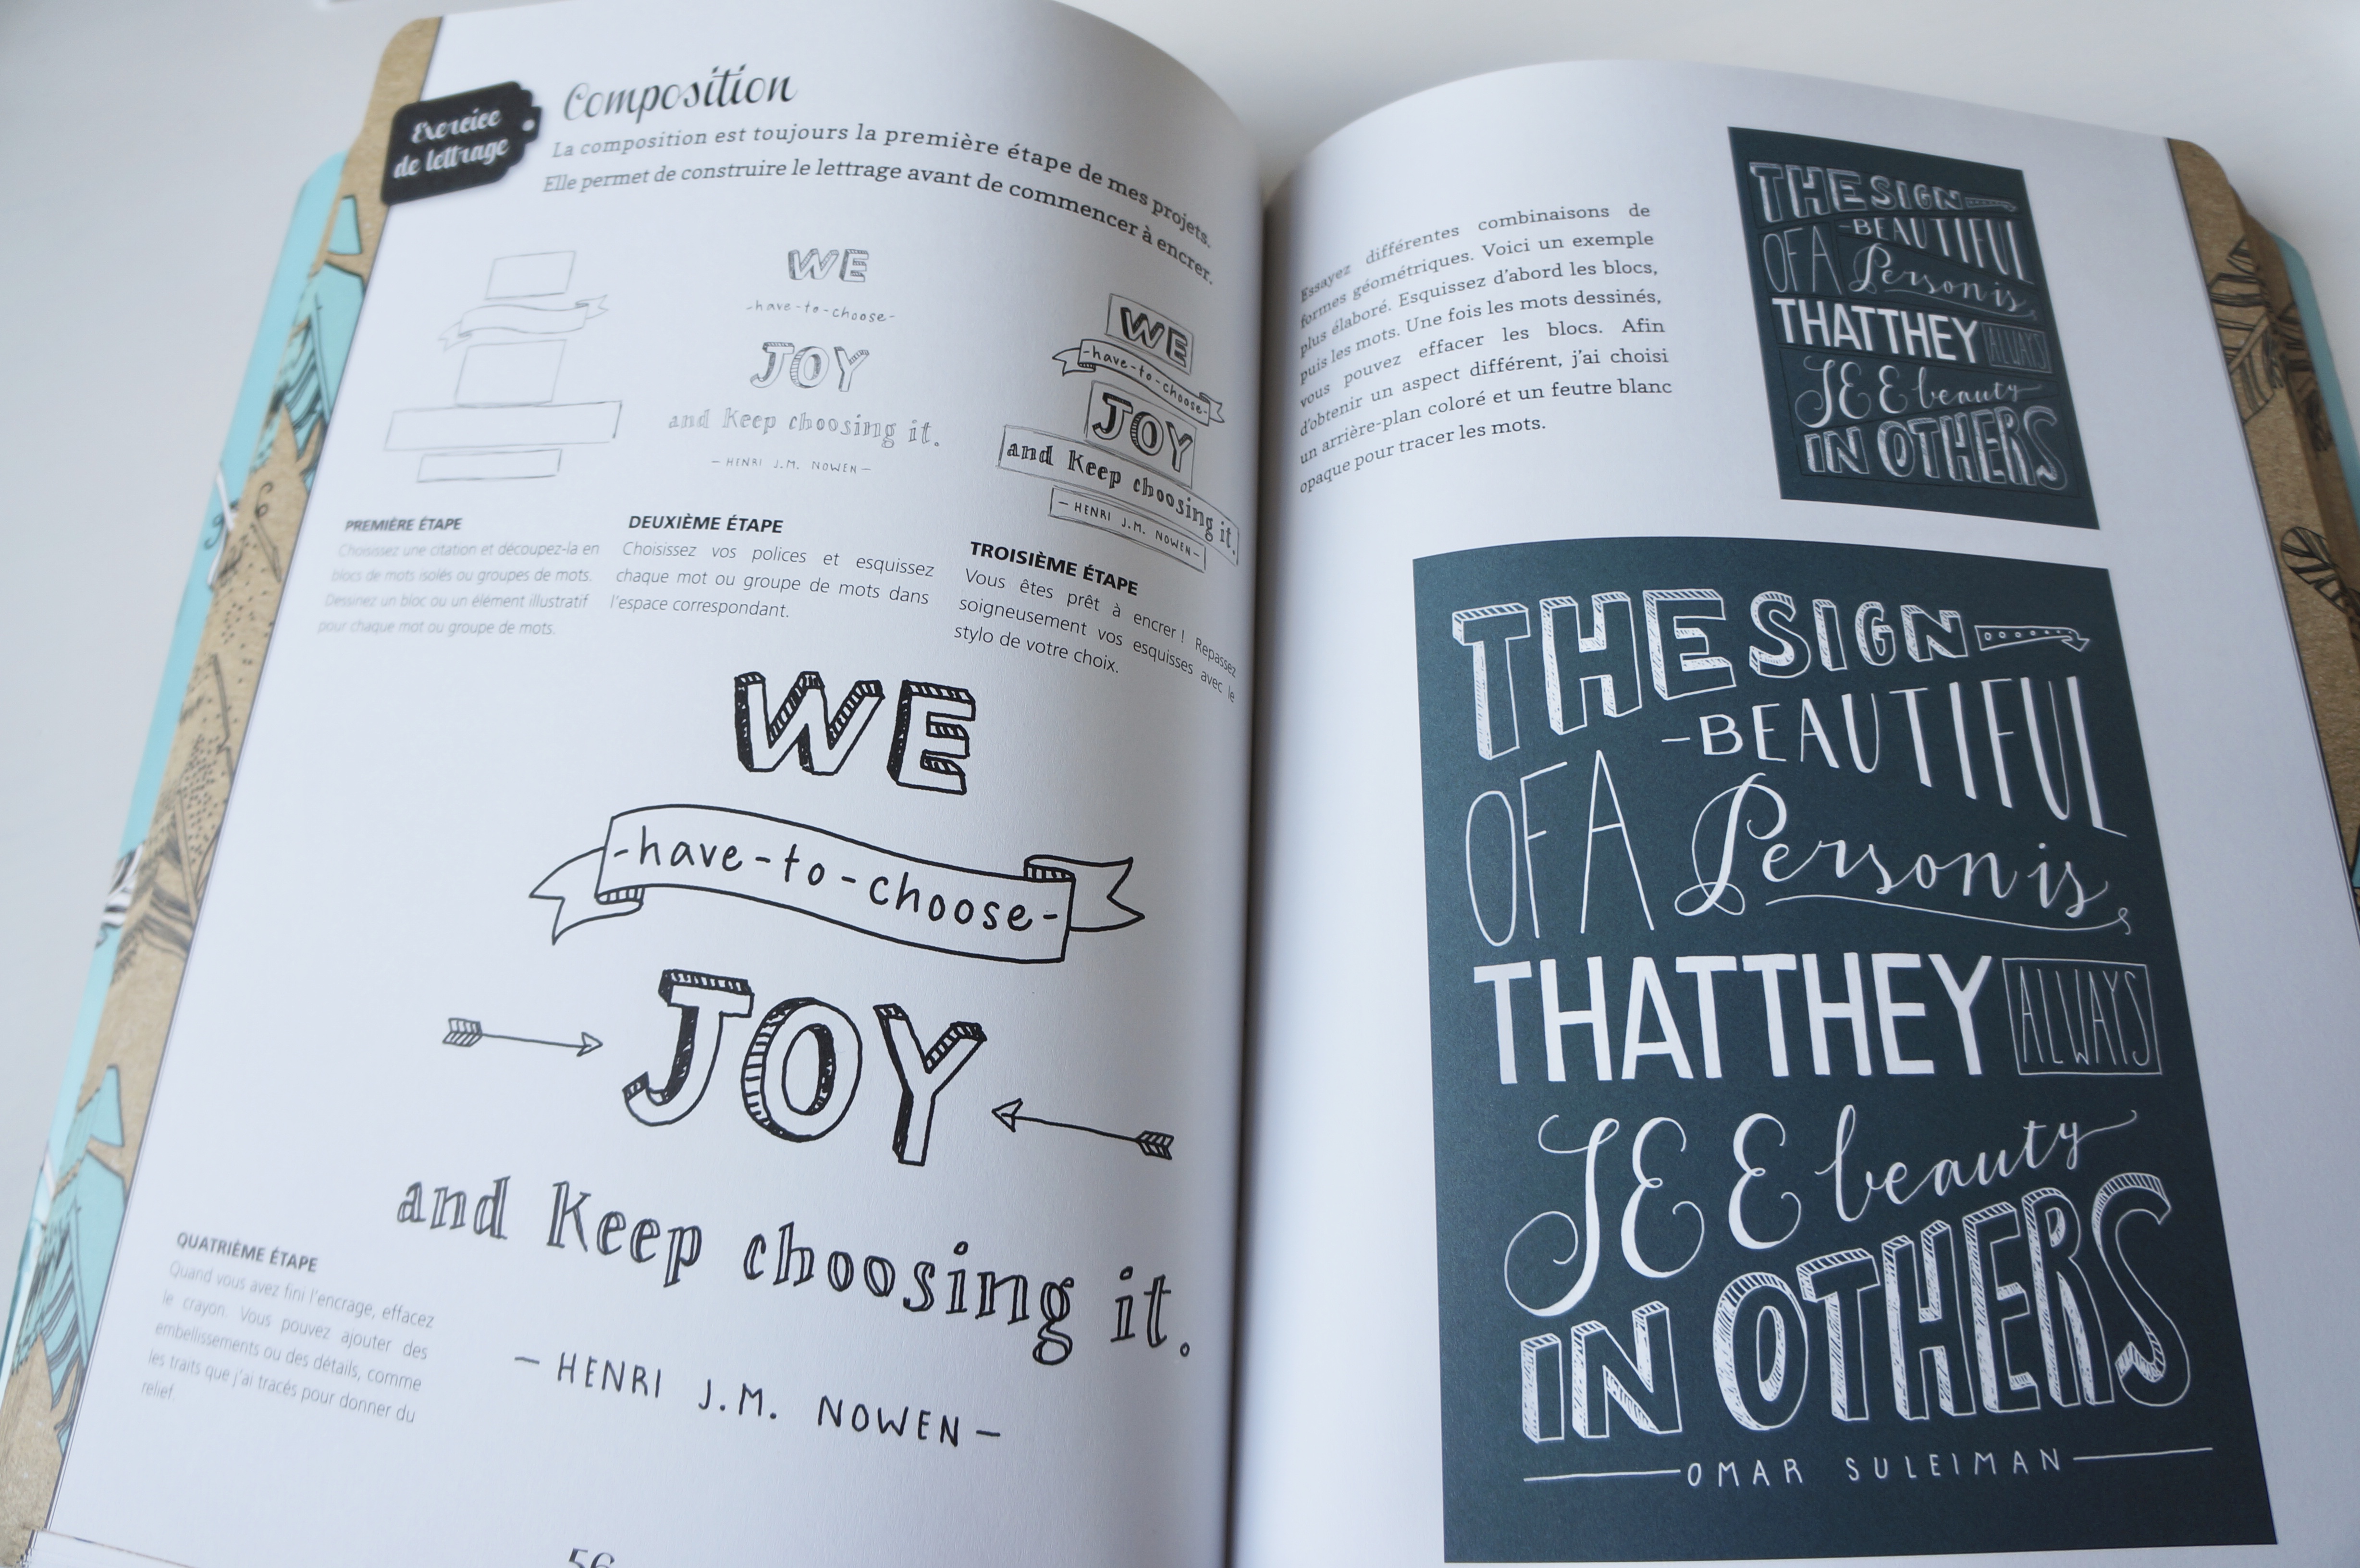 Exercice
de lettrage
Composition
La composition est toujours la première étape de mes projets.
Elle permet de construire le lettrage avant de commencer à encrer.
WE
-have-to-choose-
JOY
and Keep choosing it.
— HENRI J.M. NOWEN —
WE
-have-to-choose-
JOY
and Keep choosing it.
— HENRI J.M. NOWEN —
PREMIÈRE ÉTAPE
Choisissez une citation et découpez-la en
blocs de mots isolés ou groupes de mots.
Dessinez un bloc ou un élément illustratif
pour chaque mot ou groupe de mots.
DEUXIÈME ÉTAPE
Choisissez vos polices et esquissez
chaque mot ou groupe de mots dans
l'espace correspondant.
TROISIÈME ÉTAPE
Vous êtes prêt à encrer ! Repassez
soigneusement vos esquisses avec le
stylo de votre choix.
WE
-have-to-choose-
JOY
and Keep choosing it.
— HENRI J.M. NOWEN —
QUATRIÈME ÉTAPE
Quand vous avez fini l'encrage, effacez
le crayon. Vous pouvez ajouter des
embellissements ou des détails, comme
les traits que j'ai tracés pour donner du
relief.
56
Essayez différentes combinaisons de
formes géométriques. Voici un exemple
plus élaboré. Esquissez d'abord les blocs,
puis les mots. Une fois les mots dessinés,
vous pouvez effacer les blocs. Afin
d'obtenir un aspect différent, j'ai choisi
un arrière-plan coloré et un feutre blanc
opaque pour tracer les mots.
THE SIGN
OF A -BEAUTIFUL
Person is
THAT THEY ALWAYS
SEE beauty
IN OTHERS
THE SIGN
OF A -BEAUTIFUL
Person is
THAT THEY ALWAYS
SEE beauty
IN OTHERS
OMAR SULEIMAN